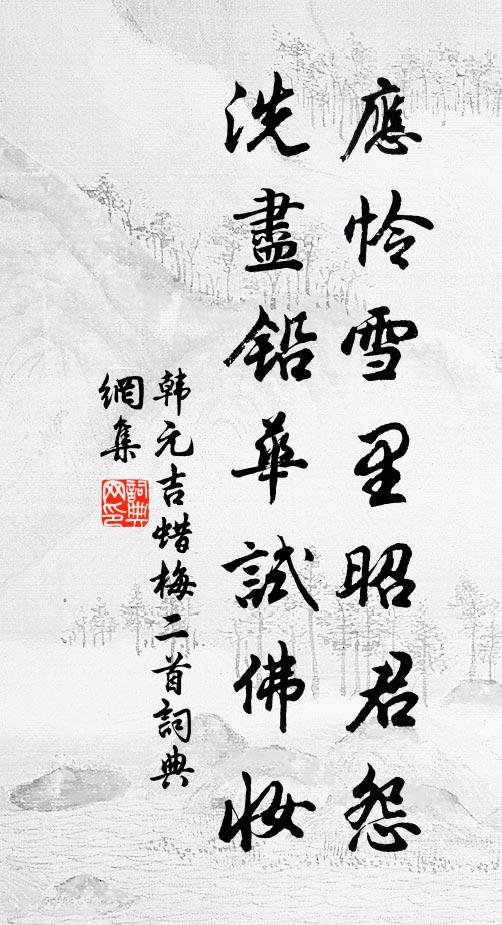 應怜雪里昭君怨
洗盡鉛華試佛妝
韩元吉蜡梅二首詞典
網集
詞典
网印